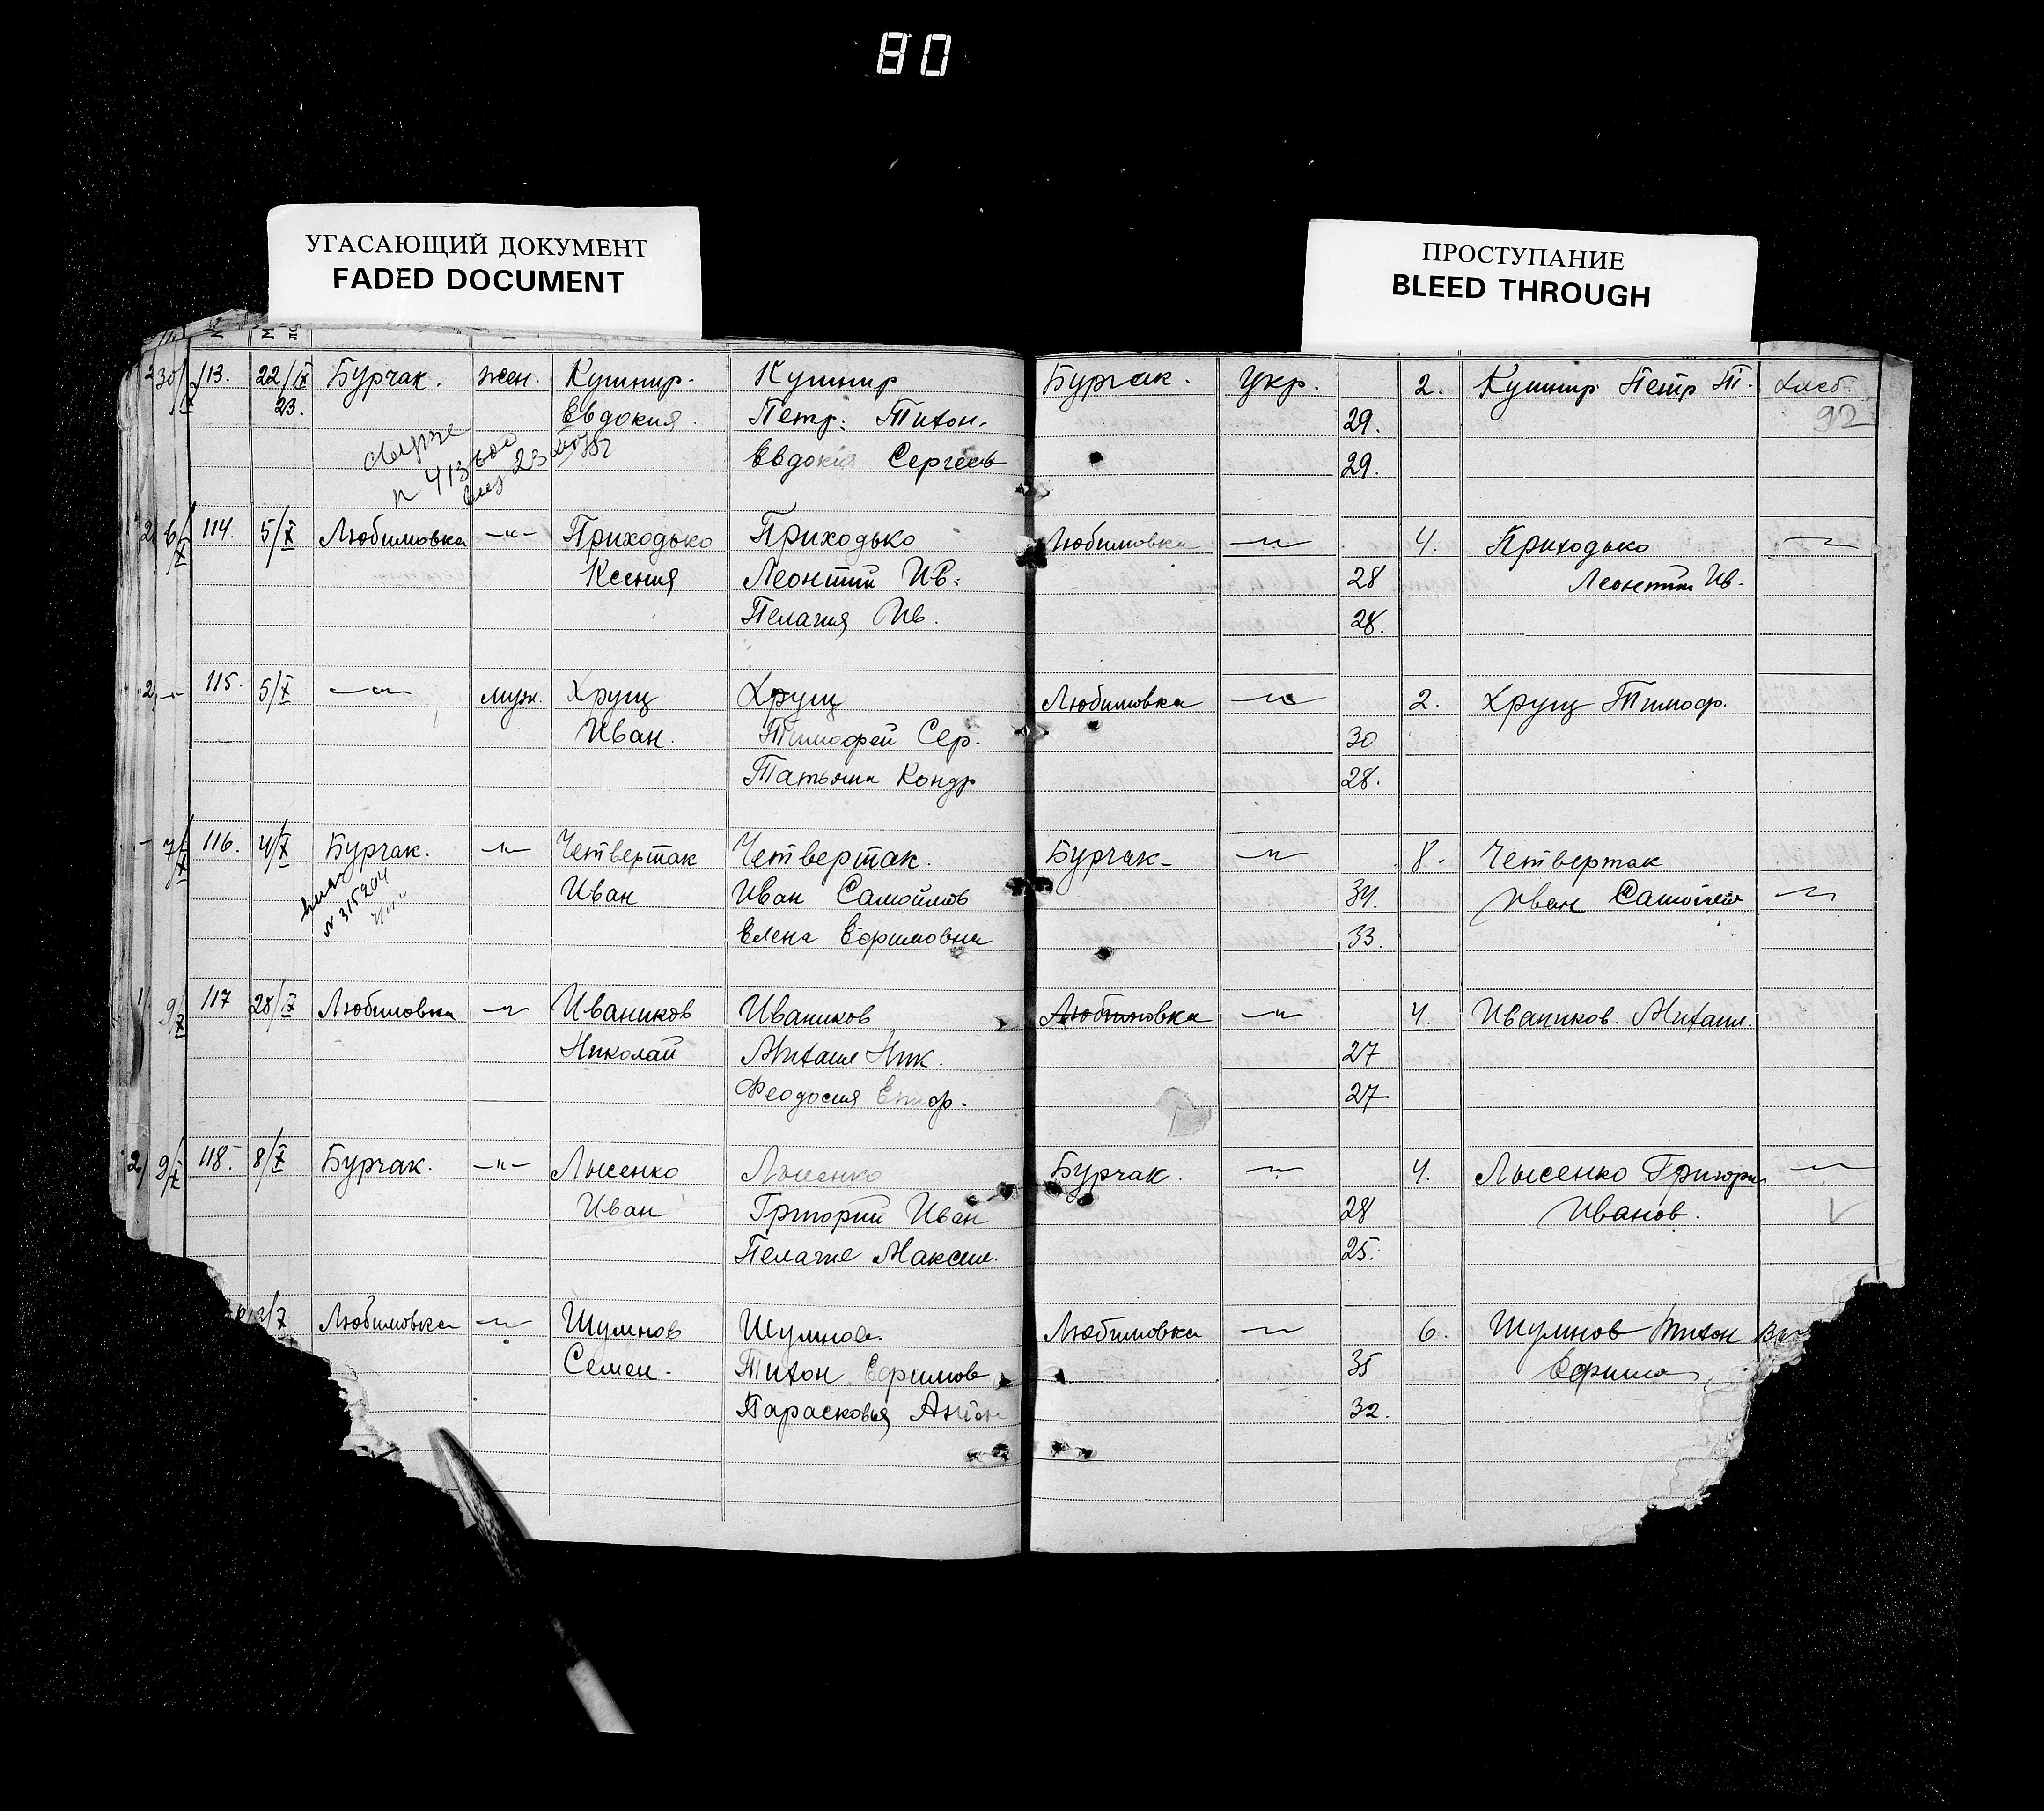 80
УГАСАЮЩИЙ ДОКУМЕНТ
FADED DOCUMENT
ПРОСТУПАНИЕ
BLEED THROUGH
30/IX 113. 22/IX Бурчак. жен. Кушнир. Кушнир Бурчак. укр. 2. Кушнир Петр Т. хлеб.
23. Евдокия. Петр. Тихон. 29. 92
Евдокия Сергеев 29.
N 413600
23
2 6/X 114. 5/X Любимовка -"- Приходько Приходько Любимовка -"- 4. Приходько -"-
Ксения Леонтий Ив. 28 Леонтий Ив.
Пелагия Ив. 28.
2 -"- 115. 5/X -"- муж. Хрущ Хрущ Любимовка -"- 2. Хрущ Тимоф.
Иван. Тимофей Сер. 30
Татьяна Кондр 28.
7/X 116. 4/X Бурчак. -"- Четвертак Четвертак. Бурчак -"- 8. Четвертак
N 315204 Иван Иван Самойлов 34. Иван Самойлов -"-
Елена Ефимовна 33.
9/X 117 28/IX Любимовка -"- Иваников Иваников Любимовка -"- 4. Иваников. Михаил.
Николай Михаил Ник. 27
Феодосия 27
2 9/X 118. 8/X Бурчак. -"- Лысенко Лысенко Бурчак. -"- 4. Лысенко Григори -"-
Иван Григорий Иван 28 Иванов.
Пелагие Максим. 25.
Любимовка -"- Шумнов Шумнов. Любимовка -"- 6. Шумнов Тихон
Семен. Тихон Ефимов 35 Ефимов
Парасковья Антон 32.